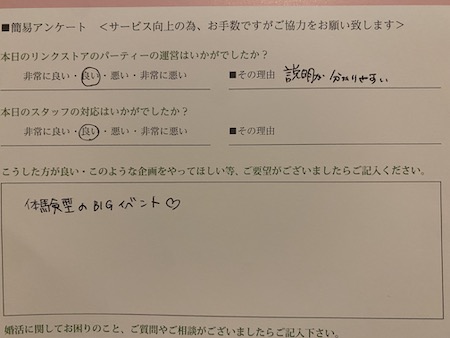 ■簡易アンケート ＜サービス向上の為、お手数ですがご協力をお願い致します＞
本日のリンクストアのパーティーの運営はいかがでしたか？
非常に良い・良い・悪い・非常に悪い ■その理由 説明が分かりやすい
本日のスタッフの対応はいかがでしたか？
非常に良い・良い・悪い・非常に悪い ■その理由
こうした方が良い・このような企画をやってほしい等、ご要望がございましたらご記入ください。
体験型のBIGイベント♡
婚活に関してお困りのこと、ご質問やご相談がございましたらご記入下さい。